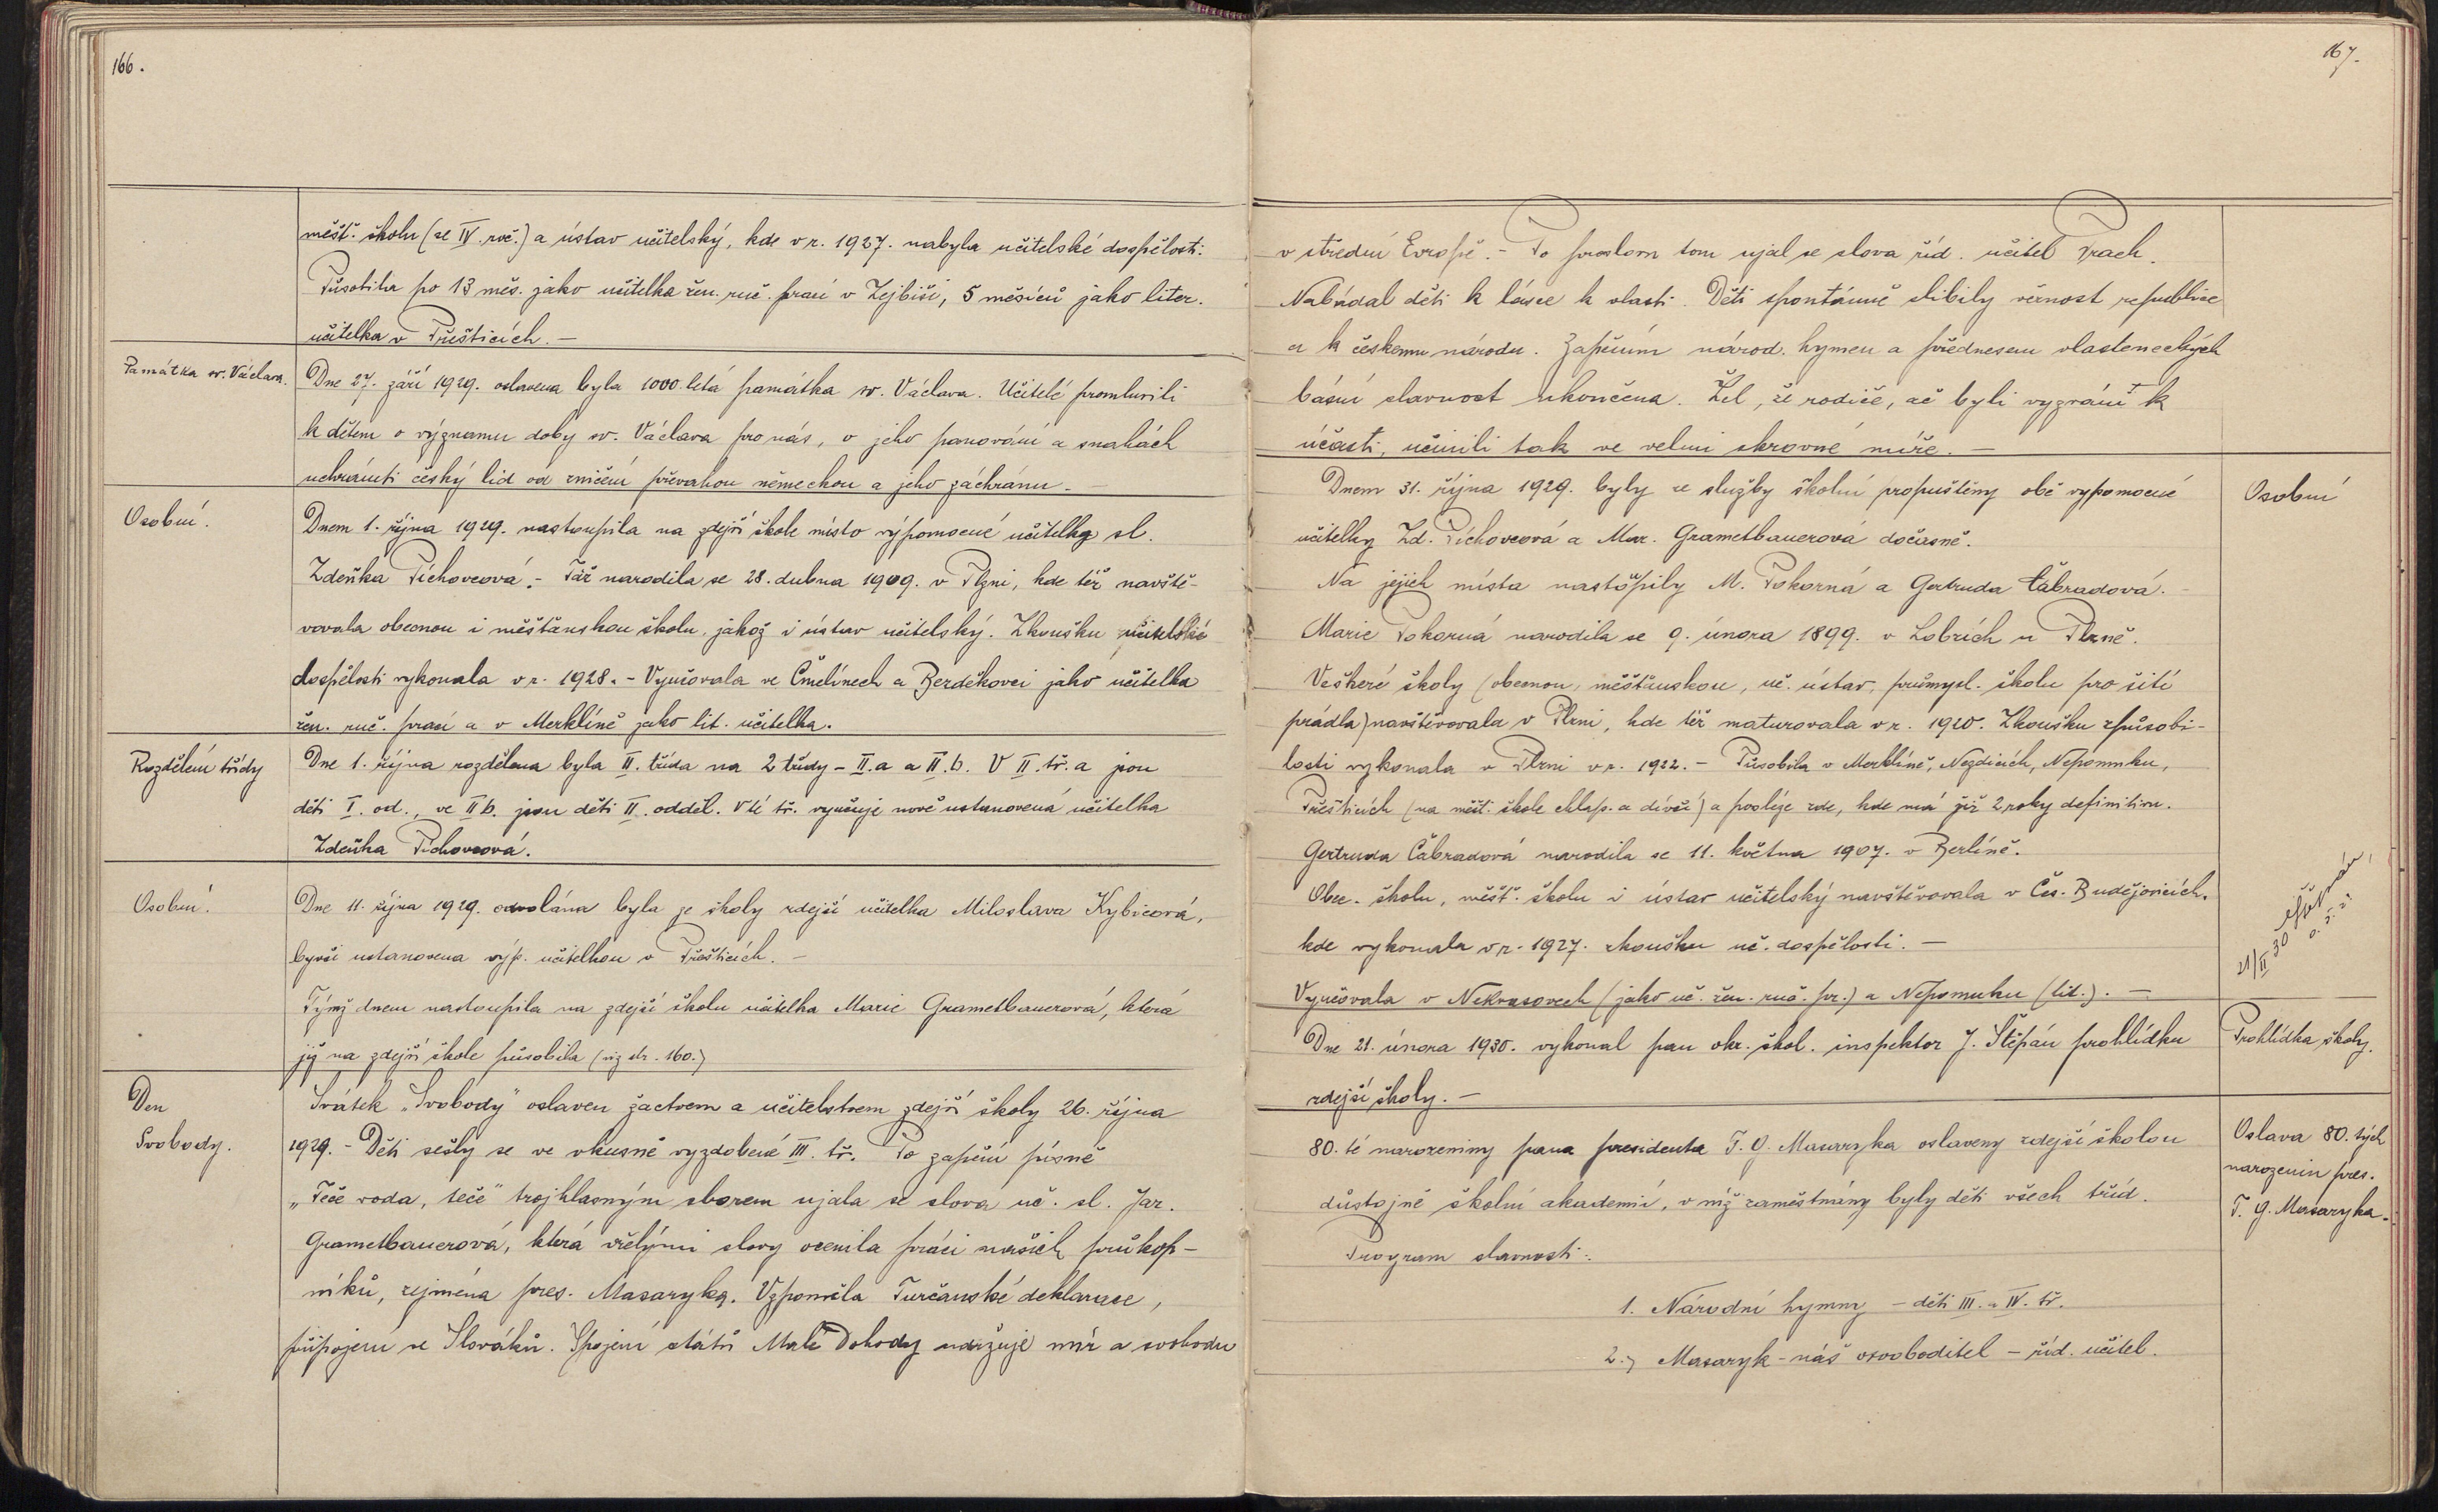 166.
měšť. školu (se IV. roč.) a ústav učitelský, kde v r. 1927. nabyla učitelské dospělosti.
Působila po 13 měs. jako učitelka žen. ruč. prací v Zejbiši, 5 měsíců jako liter.
učitelka v Přešticích. –
Památka sv. Václava.
Dne 27. září 1929. oslavena byla 1000 letá památka sv. Václava. Učitelé promluvili
k dětem o významu doby sv. Václava pro nás, o jeho panování a snahách
uchrániti český lid od zničení převahou německou a jeho záchranu. –
Osobní.
Dnem 1. října 1929. nastoupila na zdejší škole místo výpomocné učitelky sl.
Zdeňka Píchovcová. – Táž narodila se 28. dubna 1909. v Plzni, kde též navště-
vovala obecnou i měšťanskou školu, jakož i ústav učitelský. Zkoušku učitelské
dospělosti vykonala v r. 1928. – Vyučovala ve Čmelínech a Bezděkovci jako učitelka
žen. ruč. prací a v Merklíně jako lit. učitelka.
Rozdělení třídy
Dne 1. října rozdělena byla II. třída na 2 třídy – II.a a II.b. V II. tř. a jsou
děti I. od., ve II b. jsou děti II. odděl. V té tř. vyučuje nově ustanovená učitelka
Zdeňka Píchovcová.
Osobní.
Dne 11. října 1929. odvolána byla ze školy zdejší učitelka Miloslava Kybicová,
byvši ustanovena výp. učitelkou v Přešticích. –
Týmž dnem nastoupila na zdejší školu učitelka Marie Grametbauerová, která
již na zdejší škole působila (viz str. 160.)
Den
Svobody.
Svátek „Svobody" oslaven žactvem a učitelstvem zdejší školy 26. října
1929. – Děti sešly se ve vkusně vyzdobené III. tř. Po zapění písně
„Teče voda, teče" trojhlasným sborem ujala se slova uč. sl. Jar.
Grametbauerová, která vřelými slovy ocenila práci našich průkop-
níků, zejména pres. Masaryka. Vzpoměla Turčanské deklarace,
připojení se Slováků. Spojení států Malé Dohody udržuje mír a svobodu
167.
v střední Evropě. – Po proslovu tom ujal se slova říd. učitel Prach.
Nabádal děti k lásce k vlasti. Děti spontánně slibily věrnost republice
a k českému národu. Zapěním národ. hymen a přednesem vlasteneckých
básní slavnost ukončena. Žel, že rodiče, ač byli vyzváni k
účasti, učinili tak ve velmi skrovné míře. –
Osobní
Dnem 31. října 1929. byly ze služby školní propuštěny obě výpomocné
učitelky Zd. Píchovcová a Mar. Grametbauerová dočasně.
Na jejich místa nastoupily M. Pokorná a Gertruda Čábradová. –
Marie Pokorná narodila se 9. února 1899. v Lobzích u Plzně.
Veškeré školy (obecnou, měšťanskou, uč. ústav, průmysl. školu pro šití
prádla) navštěvovala v Plzni, kde též maturovala v r. 1920. Zkoušku způsobi-
losti vykonala v Plzni v r. 1922. – Působila v Merklíně, Nezdicích, Nepomuku,
Přešticích (na měšť. škole chlap. a dívčí) a posléze zde, kde má již 2 roky definitivu.
Gertruda Čábradová narodila se 11. května 1907. v Berlíně.
Obec. školu, měšť. školu i ústav učitelský navštěvovala v Čes. Budějovicích,
kde vykonala v r. 1927. zkoušku uč. dospělosti. –
Vyučovala v Nekvasovech (jako uč. žen. ruč. pr.) a Nepomuku (lit.). –
21/II 30
Štěpán
o. š. i.
Prohlídka školy.
Dne 21. února 1930. vykonal pan okr. škol. inspektor J. Štěpán prohlídku
zdejší školy. –
Oslava 80. tých
narozenin pres.
T. G. Masaryka.
80. té narozeniny pana presidenta T. G. Masaryka oslaveny zdejší školou
důstojně školní akademií, v níž zaměstnány byly děti všech tříd.
Program slavnosti:
1. Národní hymny – děti III. a IV. tř.
2.) Masaryk – náš osvoboditel – říd. učitel.